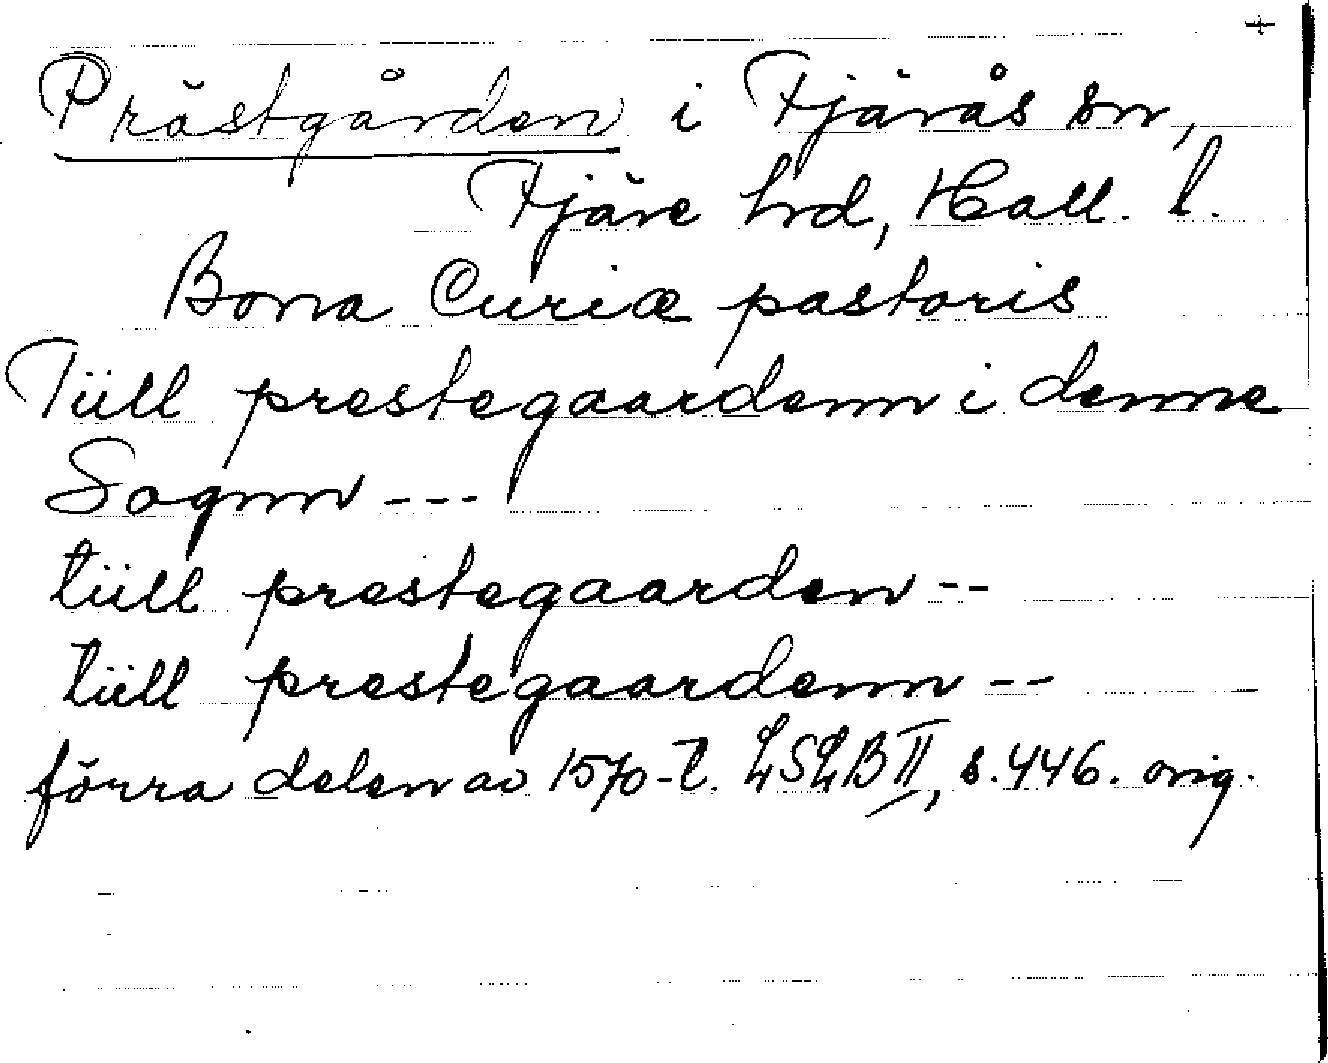 +
Prästgården i Fjärås sn,
Fjäre hrd, Hall. l.
Bona Curiæ pastoris
Tüll prestegaardenn i denne
Sognn ---
tüll prestegaarden --
tüll prestegaardenn --
förra delen av 1570-t. LSLB II, s. 446. orig.